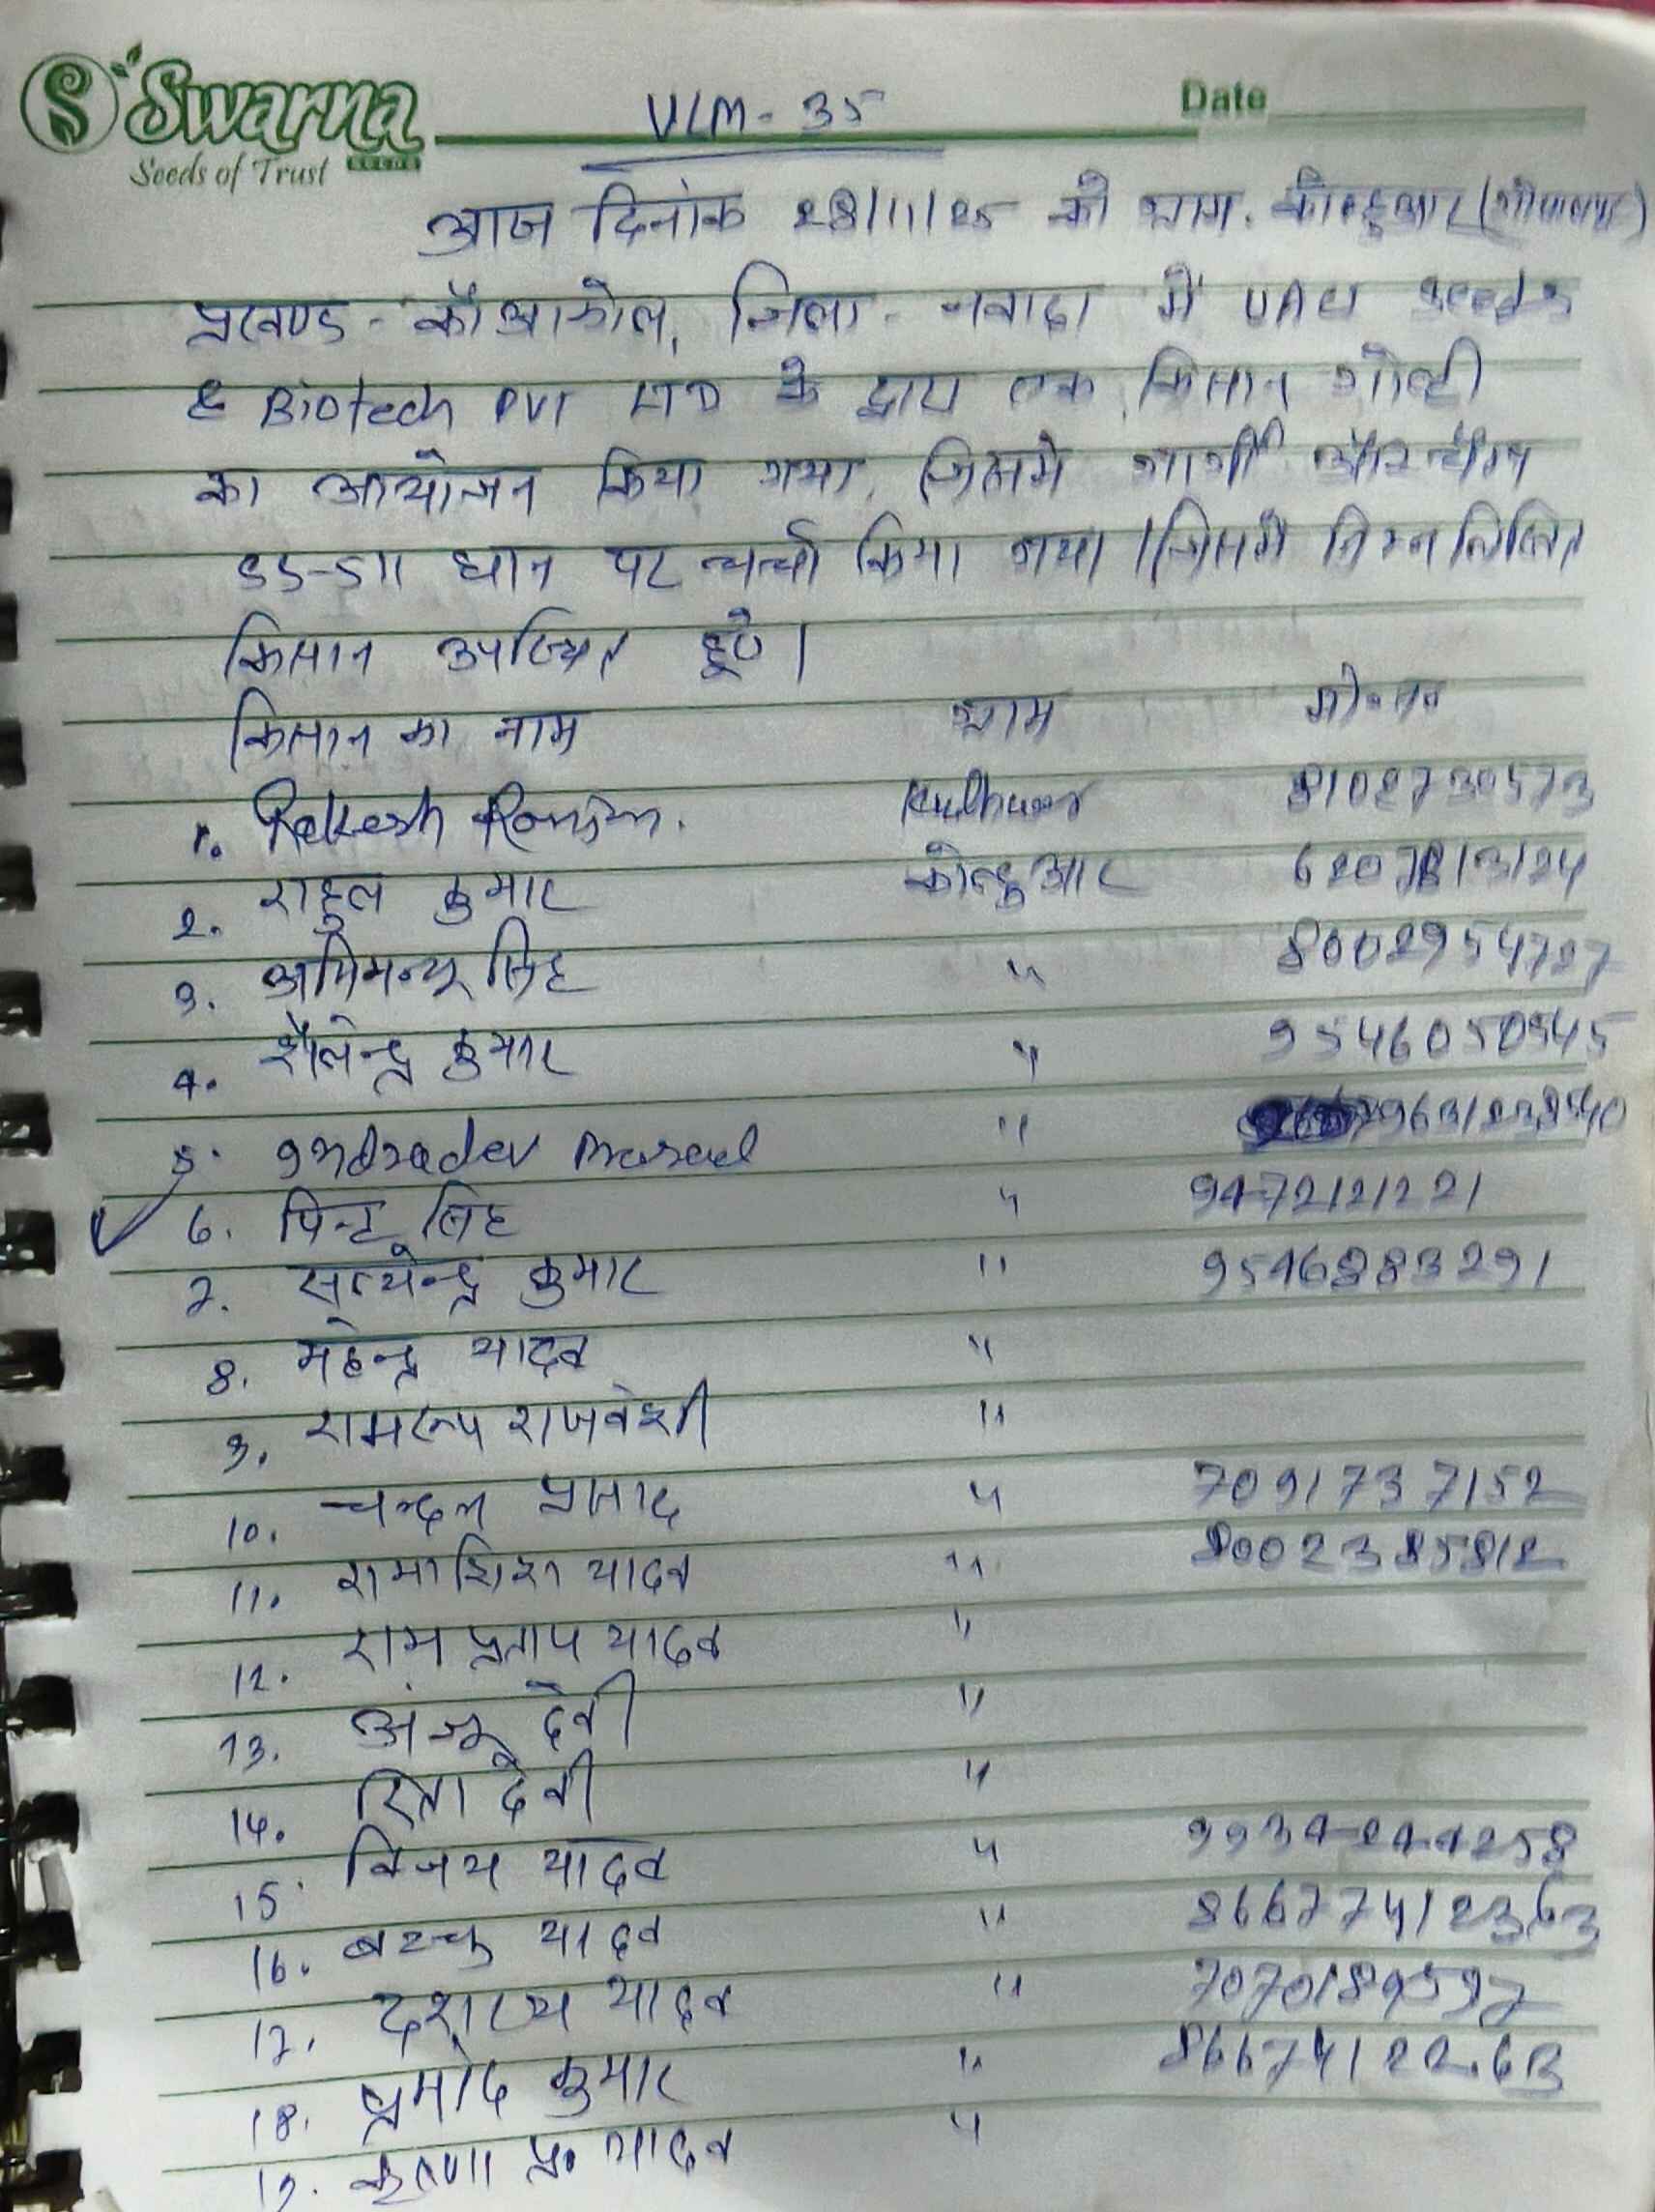 Swarna
SEEDS
Seeds of Trust
VLM - 35
Date
आज दिनांक 28/11/25 को ग्राम. कोल्हुआर
प्रखण्ड - कौआकोल, जिला - नवादा में UAU seeds
& Biotech PVT LTD के द्वारा एक किसान गोष्टी
का आयोजन किया गया, जिसमे गार्गी और
SS-511 धान पर चर्चा किया गया। जिसमे निम्नलिखित
किसान उपस्थित हुए।
किसान का नाम ग्राम मो॰ न॰
1. Rakesh Ranjan. Kulhuar 8102730573
2. राहुल कुमार कोल्हुआर
3. अभिमन्यू सिंह " 8002954727
4. शैलेन्द्र कुमार " 9546050545
5. Indradev Prasad " 9631238540
6. पिन्टू सिंह " 9472121221
7. सत्येन्द्र कुमार " 9546883291
8. महेन्द्र यादव "
9. रामरूप राजवंशी "
10. चन्दन प्रसाद " 7091737152
11. रामाशिश यादव " 8002385812
12. राम प्रताप यादव "
13. अंजू देवी "
14. रिता देवी "
15. विजय यादव " 9934244258
16. यादव " 86677412363
17. दशरथ यादव " 7070189597
18. प्रमोद कुमार " 8667412263
19. कृष्णा प्र॰ यादव "